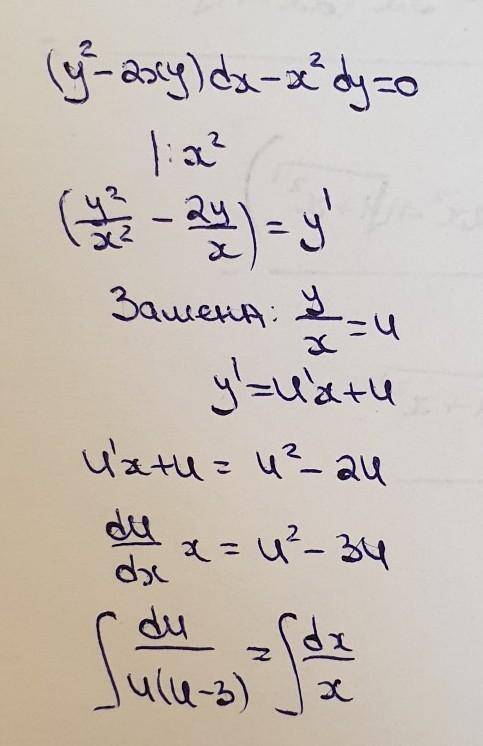 (y² - 2xy)dx - x² dy = 0
|: x²
(y²/x² - 2y/x) = y'
Замена: y/x = u
y' = u'x + u
u'x + u = u² - 2u
du/dx x = u² - 3u
∫ du/u(u-3) = ∫ dx/x